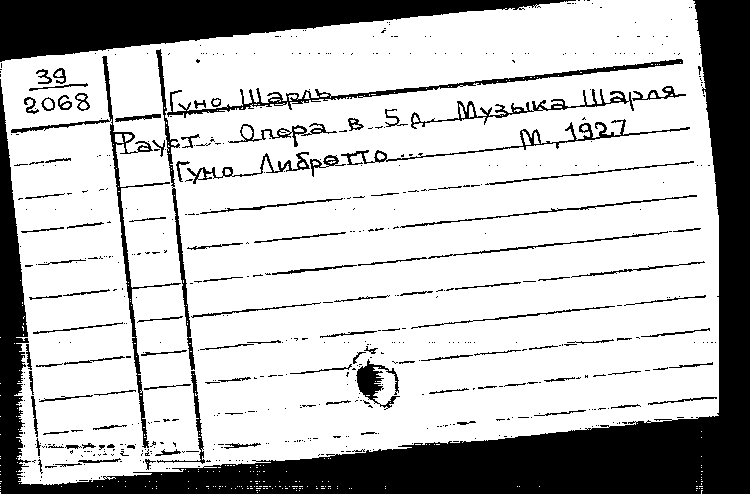 39
2068
Гуно, Шарль
Фауст. Опера в 5 д. Музыка Шарля
Гуно. Либретто... М., 1927